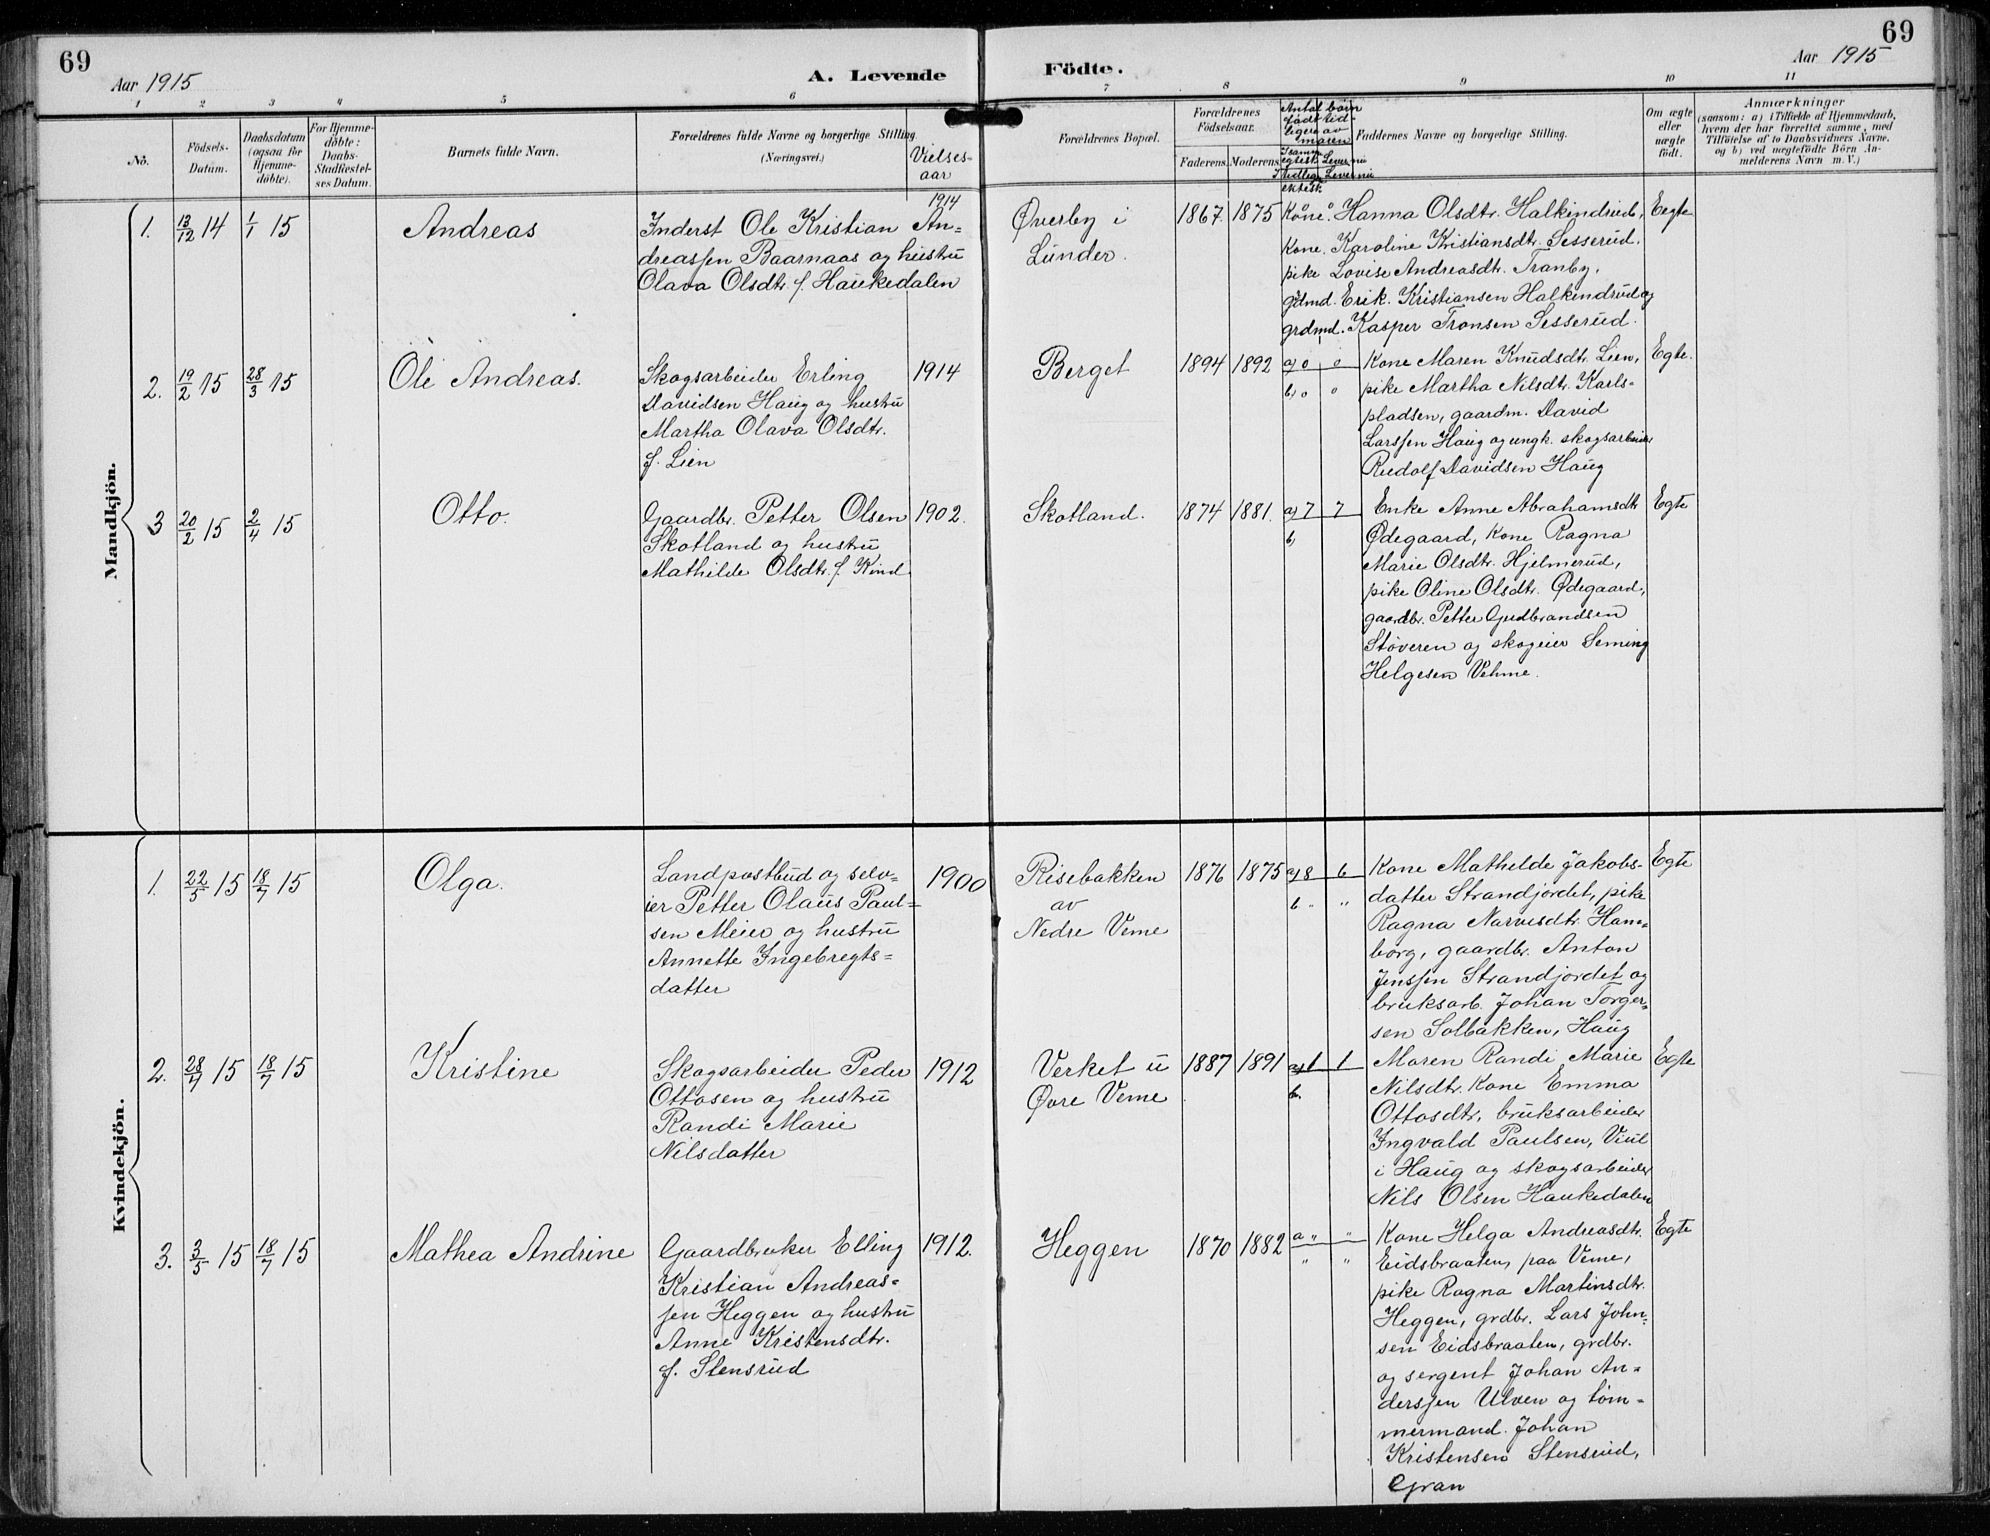 69
69
Aar 1915
A. Levende
Födte.
Aar 1915
1
2
3
4
5
6
7
8
9
10
11
No.
Födsels-
Datum.
Daabsdatum
(ogsaa för
Hjemme-
döbte).
For Hjemme-
döbte:
Daabs-
Stadfæstel-
ses Datum.
Barnets fulde Navn.
Forældrenes fulde Navne og borgerlige Stilling
(Næringsvei.)
Vielses-
aar
Forældrenes Bopæl.
Forældrenes
Födselsaar.
Faderens.
Moderens.
Antal børn
født tid-
ligere av
moren
Faddernes Navne og borgerlige Stilling.
Om ægte
eller
uægte
födt.
Anmærkninger
(saasom: a) i Tilfælde af Hjemmedaab,
hvem der har forrettet samme, med
Tilföielse af to Daabsvidners Navne.
og b) ved uægtefödte Börn An-
melderens Navn m. V.)
Mandkjön.
1.
13/12 14
1/1 15
Andreas
1914
Inderst Ole Kristian An=
dreassen Baarnaas og hustru
Olava Olsdtr. f. Haukedalen
Øverby i
Lunder.
1867.
1875
Kone. Hanna Olsdtr. Halkinrud,
Kone. Karoline Kristiansdtr. Sesserud.
pike Lovise Andreasdtr. Tranby,
gdmd. Erik. Kristiansen Halkindrud og
grdmd. Kasper Tronsen Sesserud.
Eegte
2.
19/2 15
28/3 15
Ole Andreas.
Skogsarbeider Erling
Davidsen Haug og hustru
Martha Olava Olsdtr.
f. Lien
1914
Berget
1894
1892
a) 0 0
b) 0 0
Kone Maren Knudsdtr. Lien,
pike Martha Nilsdtr. Karls-
pladsen, gaardm. David
Larssen Haug og ungk. skogsarbeider
Rudolf Davidsen Haug
Egte.
3
20/2 15
2/4 15
Otto.
Gaardbr. Petter Olsen
Skotland og hustru
Mathilde Olsdtr. f. Kind
1902.
Skotland.
1874
1881.
a) 7 7
b)
Enke Anne Abrahamsdtr
Ødegaard, Kone Ragna
Marie Olsdtr. Hjelmerud,
pike Oline Olsdtr. Ødegaard,
gaardbr. Petter Gudbrandsen
Støveren og skogeier Seming
Helgesen Vehme.
Egte
Kvindekjön.
1.
22/5 15
18/7 15
Olga.
Landpostbud og selv=
eier Petter Olaus Paul=
sen Meier og hustru
Annette Ingebregts=
datter
1900
Risebakken
av
Nedre Veme
1876
1875
a) 8 6
b " "
Kone Mathelde Jakobs-
datter Strandjordet, pike
Ragna Narvesdtr. Ham-
borg, gaardbr. Anton
Jenssen Strandjordet og
bruksarb. Johan Torger=
sen Solbakken, Haug
Egte
2.
28/4 15
18/7 15
Kristine
Skogsarbeider Peder
Ottosen og hustru
Randi Marie
Nilsdatter
1912
Verket u
Øvre Veme
1887
1891
a) 1 1
b.
Moren Randi Marie
Nilsdtr. Kone Emma
Ottosdtr, bruksarbeider
Ingvald Paulsen, Viul
i Haug og skogsarbeider
Nils Olsen Haukedalen
Egte
3.
3/5 15
18/7 15
Mathea Andrine
Gaardbruker Elling
Kristian Andreas=
sen Heggen og hustru
Anne Kristensdtr.
f. Stensrud
1912.
Heggen
1870
1882
a " "
" "
Kone Helga Andreasdtr.
Eidsbraaten, paa Veme,
pike Ragna Martinsdtr.
Heggen, grdbr. Lars John-
sen Eidsbraaten, grdbr.
og sergent Johan An=
derssen Ulven og tøm=
mermand. Johan
Kristensen Stensrud,
Gran
Egte